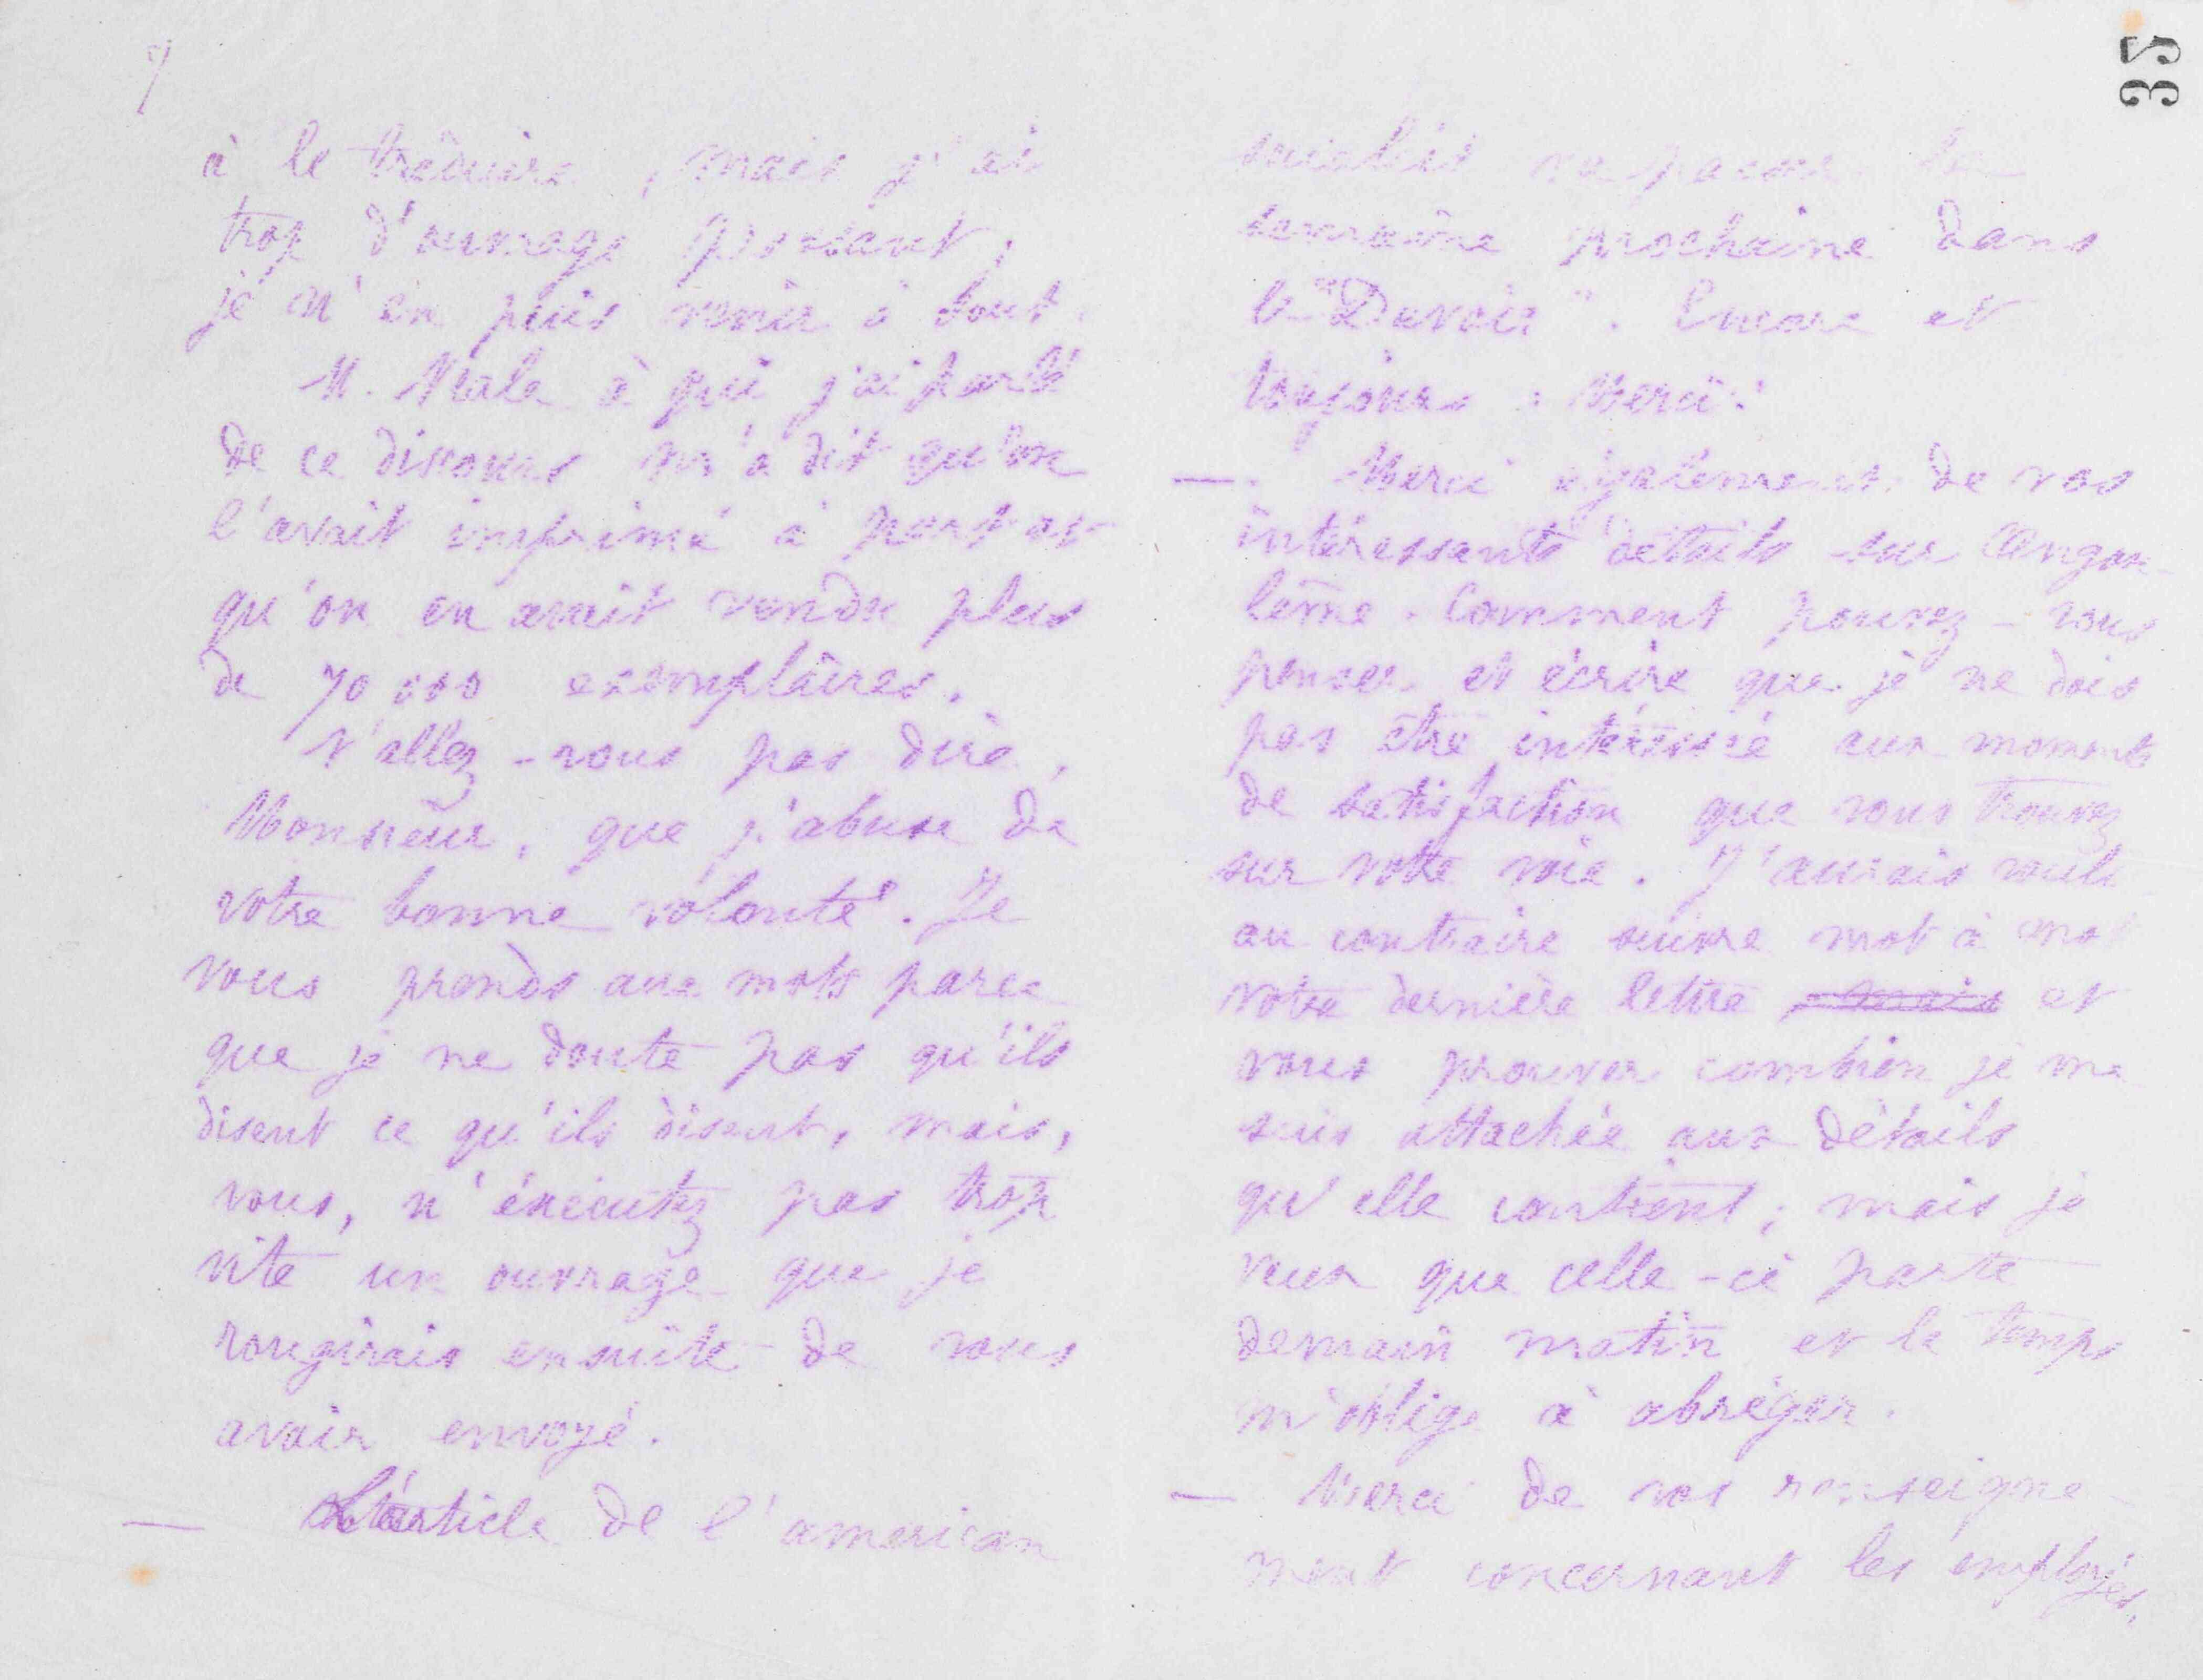 à le traduire, mais j'ai
trop d'ouvrage pressant,
je n'en puis venir à bout.
M. Neale à qui j'ai parlé
de ce discours m'a dit qu'on
l'avait imprimé à part et
qu'on en avait vendu plus
de 70 000 exemplaires.
N'allez-vous pas dire,
Monsieur, que j'abuse de
votre bonne volonté. Je
vous prends aux mots parce
que je ne doute pas qu'ils
disent ce qu'ils disent, mais,
vous, n'éxécutez pas trop
vite un ouvrage que je
rougirais ensuite de vous
avoir envoyé.
— L'article de l'american
35
socialist va passer la
semaine prochaine dans
le "Devoir". Encore et
toujours : Merci!
—. Merci également de vos
intéressants détails sur Angou-
lême. Comment pouvez-vous
penser et écrire que je ne dois
pas être intéressée aux moments
de satisfaction que vous trouvez
sur votre voie. J'aurais voulu
au contraire suivre mot à mot
votre dernière lettre , mais et
vous prouver combien je me
suis attachée aux détails
qu'elle contient ; mais je
veux que celle-ci parte
demain matin et le temps
m'oblige à abréger.
— Merci de vos renseigne-
ment concernant les employés,